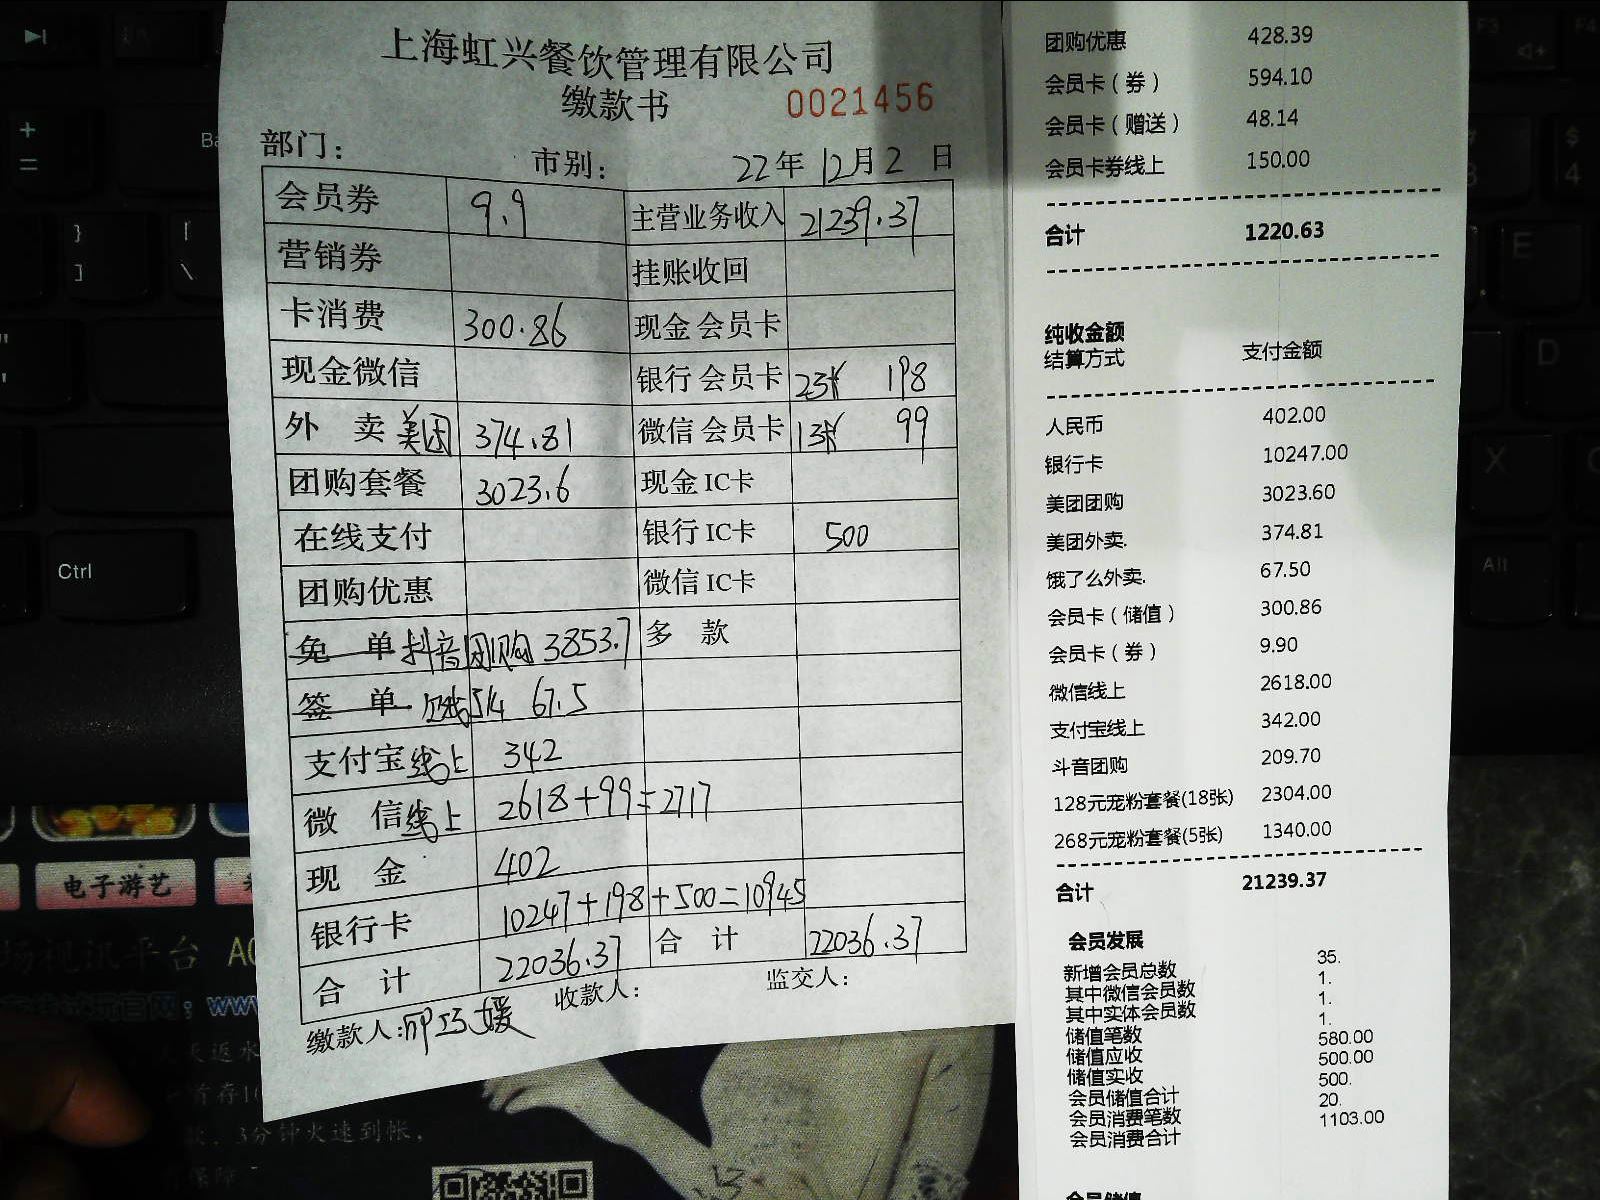 上海虹兴餐饮管理有限公司
缴款书 0021456
部门： 市别： 22年12月2日
会员券 9.9 主营业务收入 21239.37
营销券 挂账收回
卡消费 300.86 现金会员卡
现金微信 银行会员卡 2张 198
外 卖 美团 374.81 微信会员卡 1张 99
团购套餐 3023.6 现金IC卡
在线支付 银行IC卡 500
团购优惠 微信IC卡
免 单 抖音团购 3853.7 多 款
签 单 67.5
支付宝线上 342
微 信线上 2618+99=2717
现 金 402
银行卡 10247+198+500=10945
合 计 22036.37 合 计 22036.37
缴款人: 收款人: 监交人:
团购优惠 428.39
会员卡（券） 594.10
会员卡（赠送） 48.14
会员卡券线上 150.00
合计 1220.63
纯收金额
结算方式 支付金额
人民币 402.00
银行卡 10247.00
美团团购 3023.60
美团外卖. 374.81
饿了么外卖. 67.50
会员卡（储值） 300.86
会员卡（券） 9.90
微信线上 2618.00
支付宝线上 342.00
斗音团购 209.70
128元宠粉套餐(18张) 2304.00
268元宠粉套餐(5张) 1340.00
合计 21239.37
会员发展
新增会员总数 35.
其中微信会员数 1.
其中实体会员数 1.
储值笔数 1.
储值应收 580.00
储值实收 500.00
会员储值合计 500.
会员消费笔数 20.
会员消费合计 1103.00
会员储值
+
=
Ba
}
]
[
\
"
'
Ctrl
F3
F4
$
4
E
D
X
Alt
电子游艺
场视讯平台 AG
: www
3分钟火速到帐，